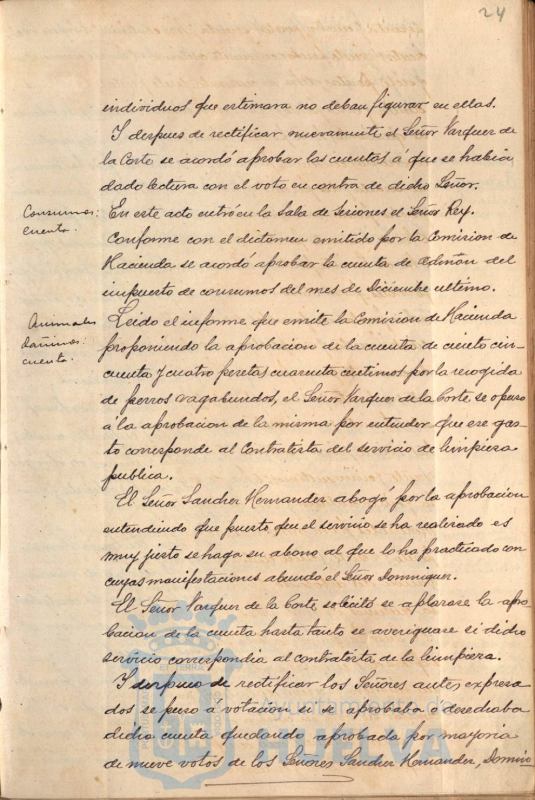 24
individuos que estimara no deban figurar en ellas.
Y despues de rectificar nuevamente el Señor Vazquez de
la Corte se acordó aprobar las cuentas á que se habia
dado lectura con el voto en contra de dicho Señor.
Consumos:
cuenta.
En este acto entró en la Sala de Sesiones el Señor Rey.
Conforme con el dictamen emitido por la Comision de
Hacienda se acordó aprobar la cuenta de admón del
impuesto de consumos del mes de Diciembre ultimo.
Animales
dañinos:
cuenta.
Leido el informe que emite la Comision de Hacienda
proponiendo la aprobacion de la cuenta de ciento cin-
cuenta y cuatro pesetas cuarenta centimos por la recogida
de perros vagabundos, el Señor Vazquez de la Corte se opuso
á la aprobacion de la misma por entender que ese gas-
to corresponde al Contratista del servicio de limpieza
publica.
El Señor Sanchez Hernandez abogó por la aprobacion
entendiendo que puesto que el servicio se ha realizado es
muy justo se haga su abono al que lo ha practicado con
cuyas manifestaciones abundó el Señor Dominguez.
El Señor Vazquez de la Corte solicitó se aplazase la apro
bacion de la cuenta hasta tanto se averiguase si dicho
servicio correspondia al contratista de la limpieza.
Y despues de rectificar los Señores antes expresa
dos se puso á votacion si se aprobaba o desechaba
dicha cuenta quedando aprobada por mayoria
de nueve votos de los Señores Sanchez Hernandez, Domin-
Ayuntamiento de
HUELVA